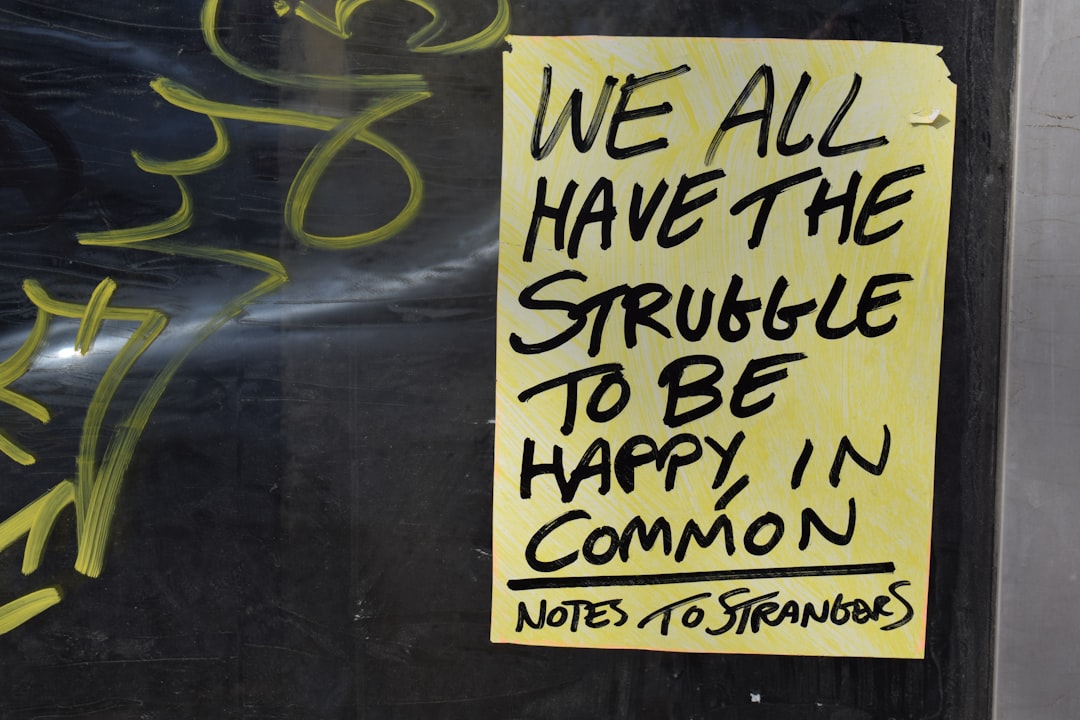 WE ALL
HAVE THE
STRUGGLE
TO BE
HAPPY, IN
COMMON
NOTES TO STRANGERS